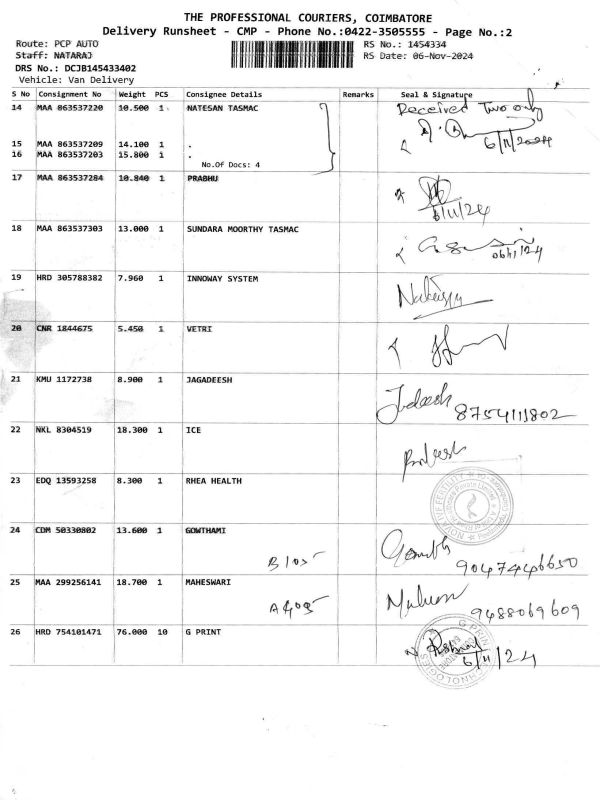 THE PROFESSIONAL COURIERS, COIMBATORE
Delivery Runsheet - CMP - Phone No.:0422-3505555 - Page No.:2
Route: PCP AUTO
RS No.: 1454334
Staff: NATARAJ
RS Date: 06-Nov-2024
DRS No.: DCJB145433402
Vehicle: Van Delivery
S No Consignment No Weight PCS Consignee Details Remarks Seal & Signature
14 MAA 863537220 10.500 1 NATESAN TASMAC Received Two only
15 MAA 863537209 14.100 1 . 6/11/2024
16 MAA 863537203 15.800 1 .
No.Of Docs: 4
17 MAA 863537284 10.840 1 PRABHU
6/11/24
18 MAA 863537303 13.000 1 SUNDARA MOORTHY TASMAC
06/11/24
19 HRD 305788382 7.960 1 INNOWAY SYSTEM
20 CNR 1844675 5.450 1 VETRI
21 KMU 1172738 8.900 1 JAGADEESH
8754111802
22 NKL 8304519 18.300 1 ICE
23 EDQ 13593258 8.300 1 RHEA HEALTH
24 CDM 50330802 13.600 1 GOWTHAMI
B 105 9047446650
25 MAA 299256141 18.700 1 MAHESWARI
A 409 9488069609
26 HRD 754101471 76.000 10 G PRINT
6/11/24